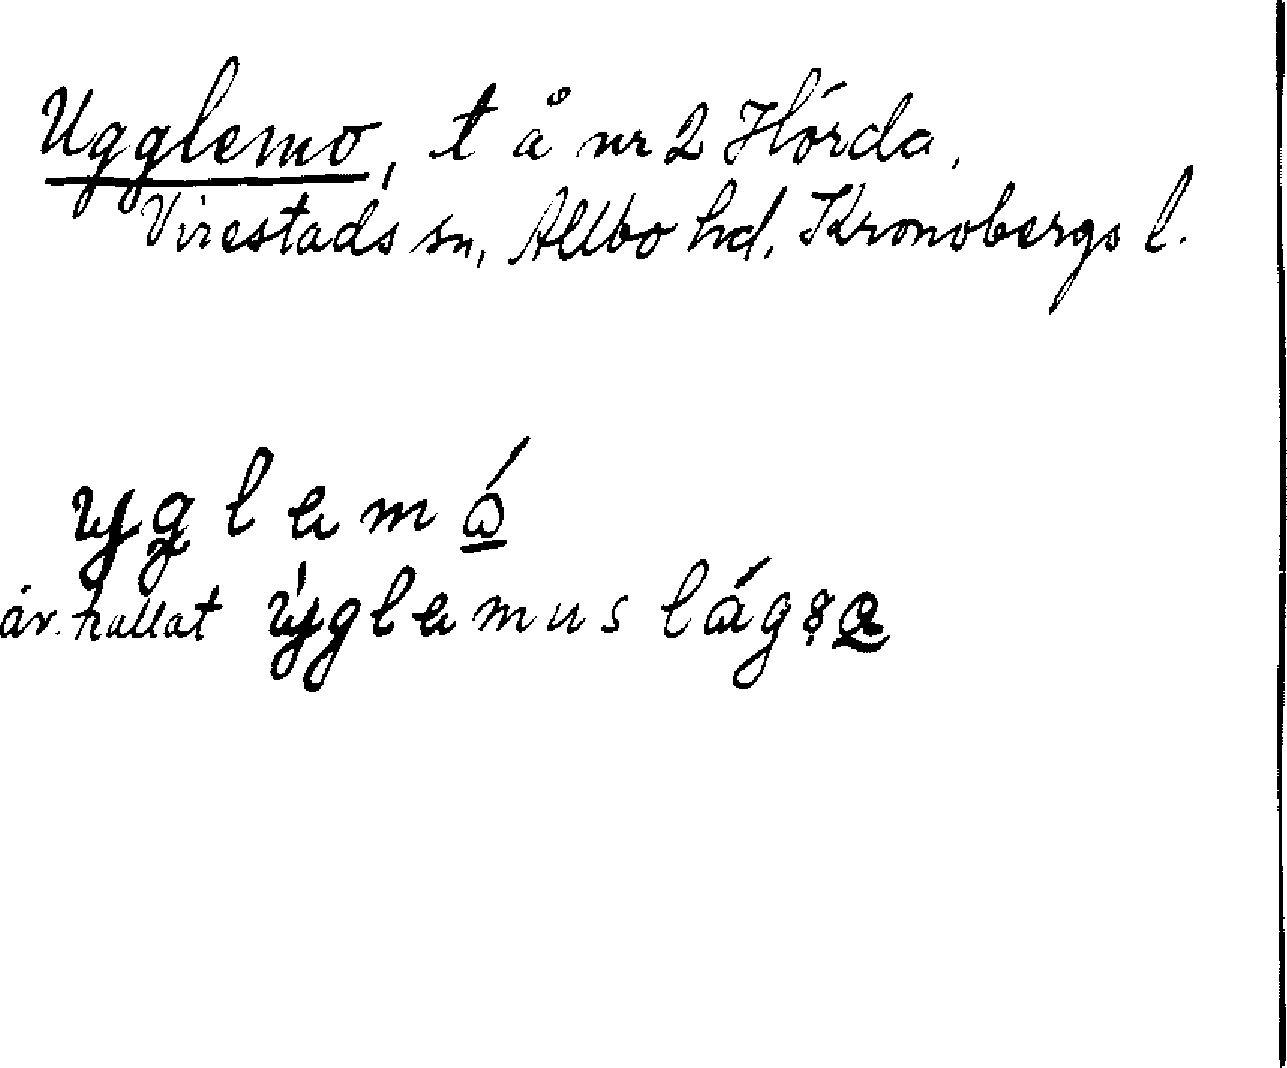 Ugglemo, t å nr 2 Hörda,
Virestads sn, Allbo hd, Kronobergs l.
yglemó
äv. kallat ýglemus lág